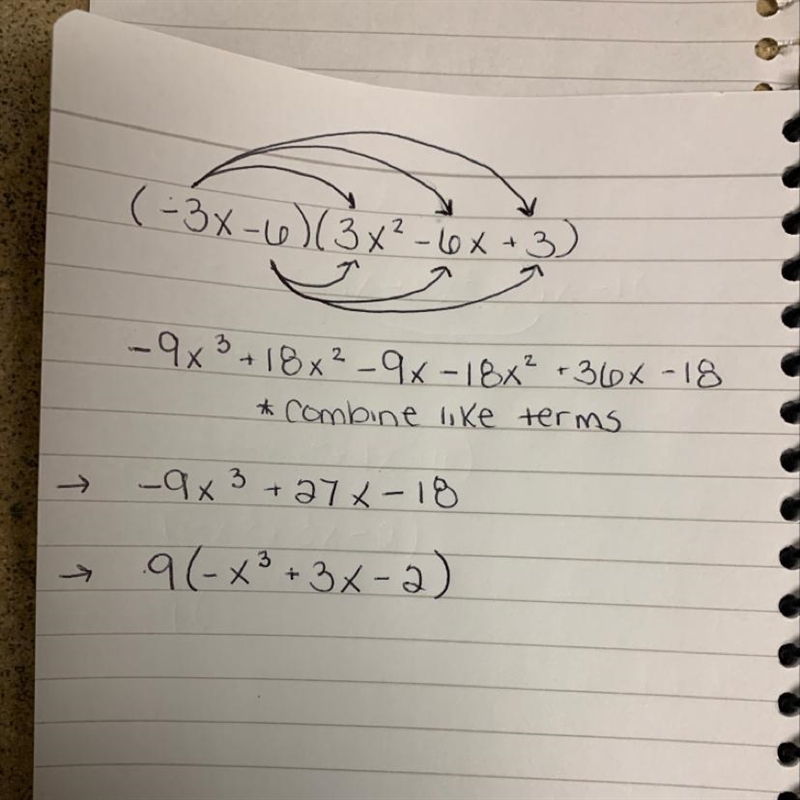 (-3x - 6)(3x² - 6x + 3)
-9x³ + 18x² - 9x - 18x² + 36x - 18
* combine like terms
→ -9x³ + 27x - 18
→ 9(-x³ + 3x - 2)